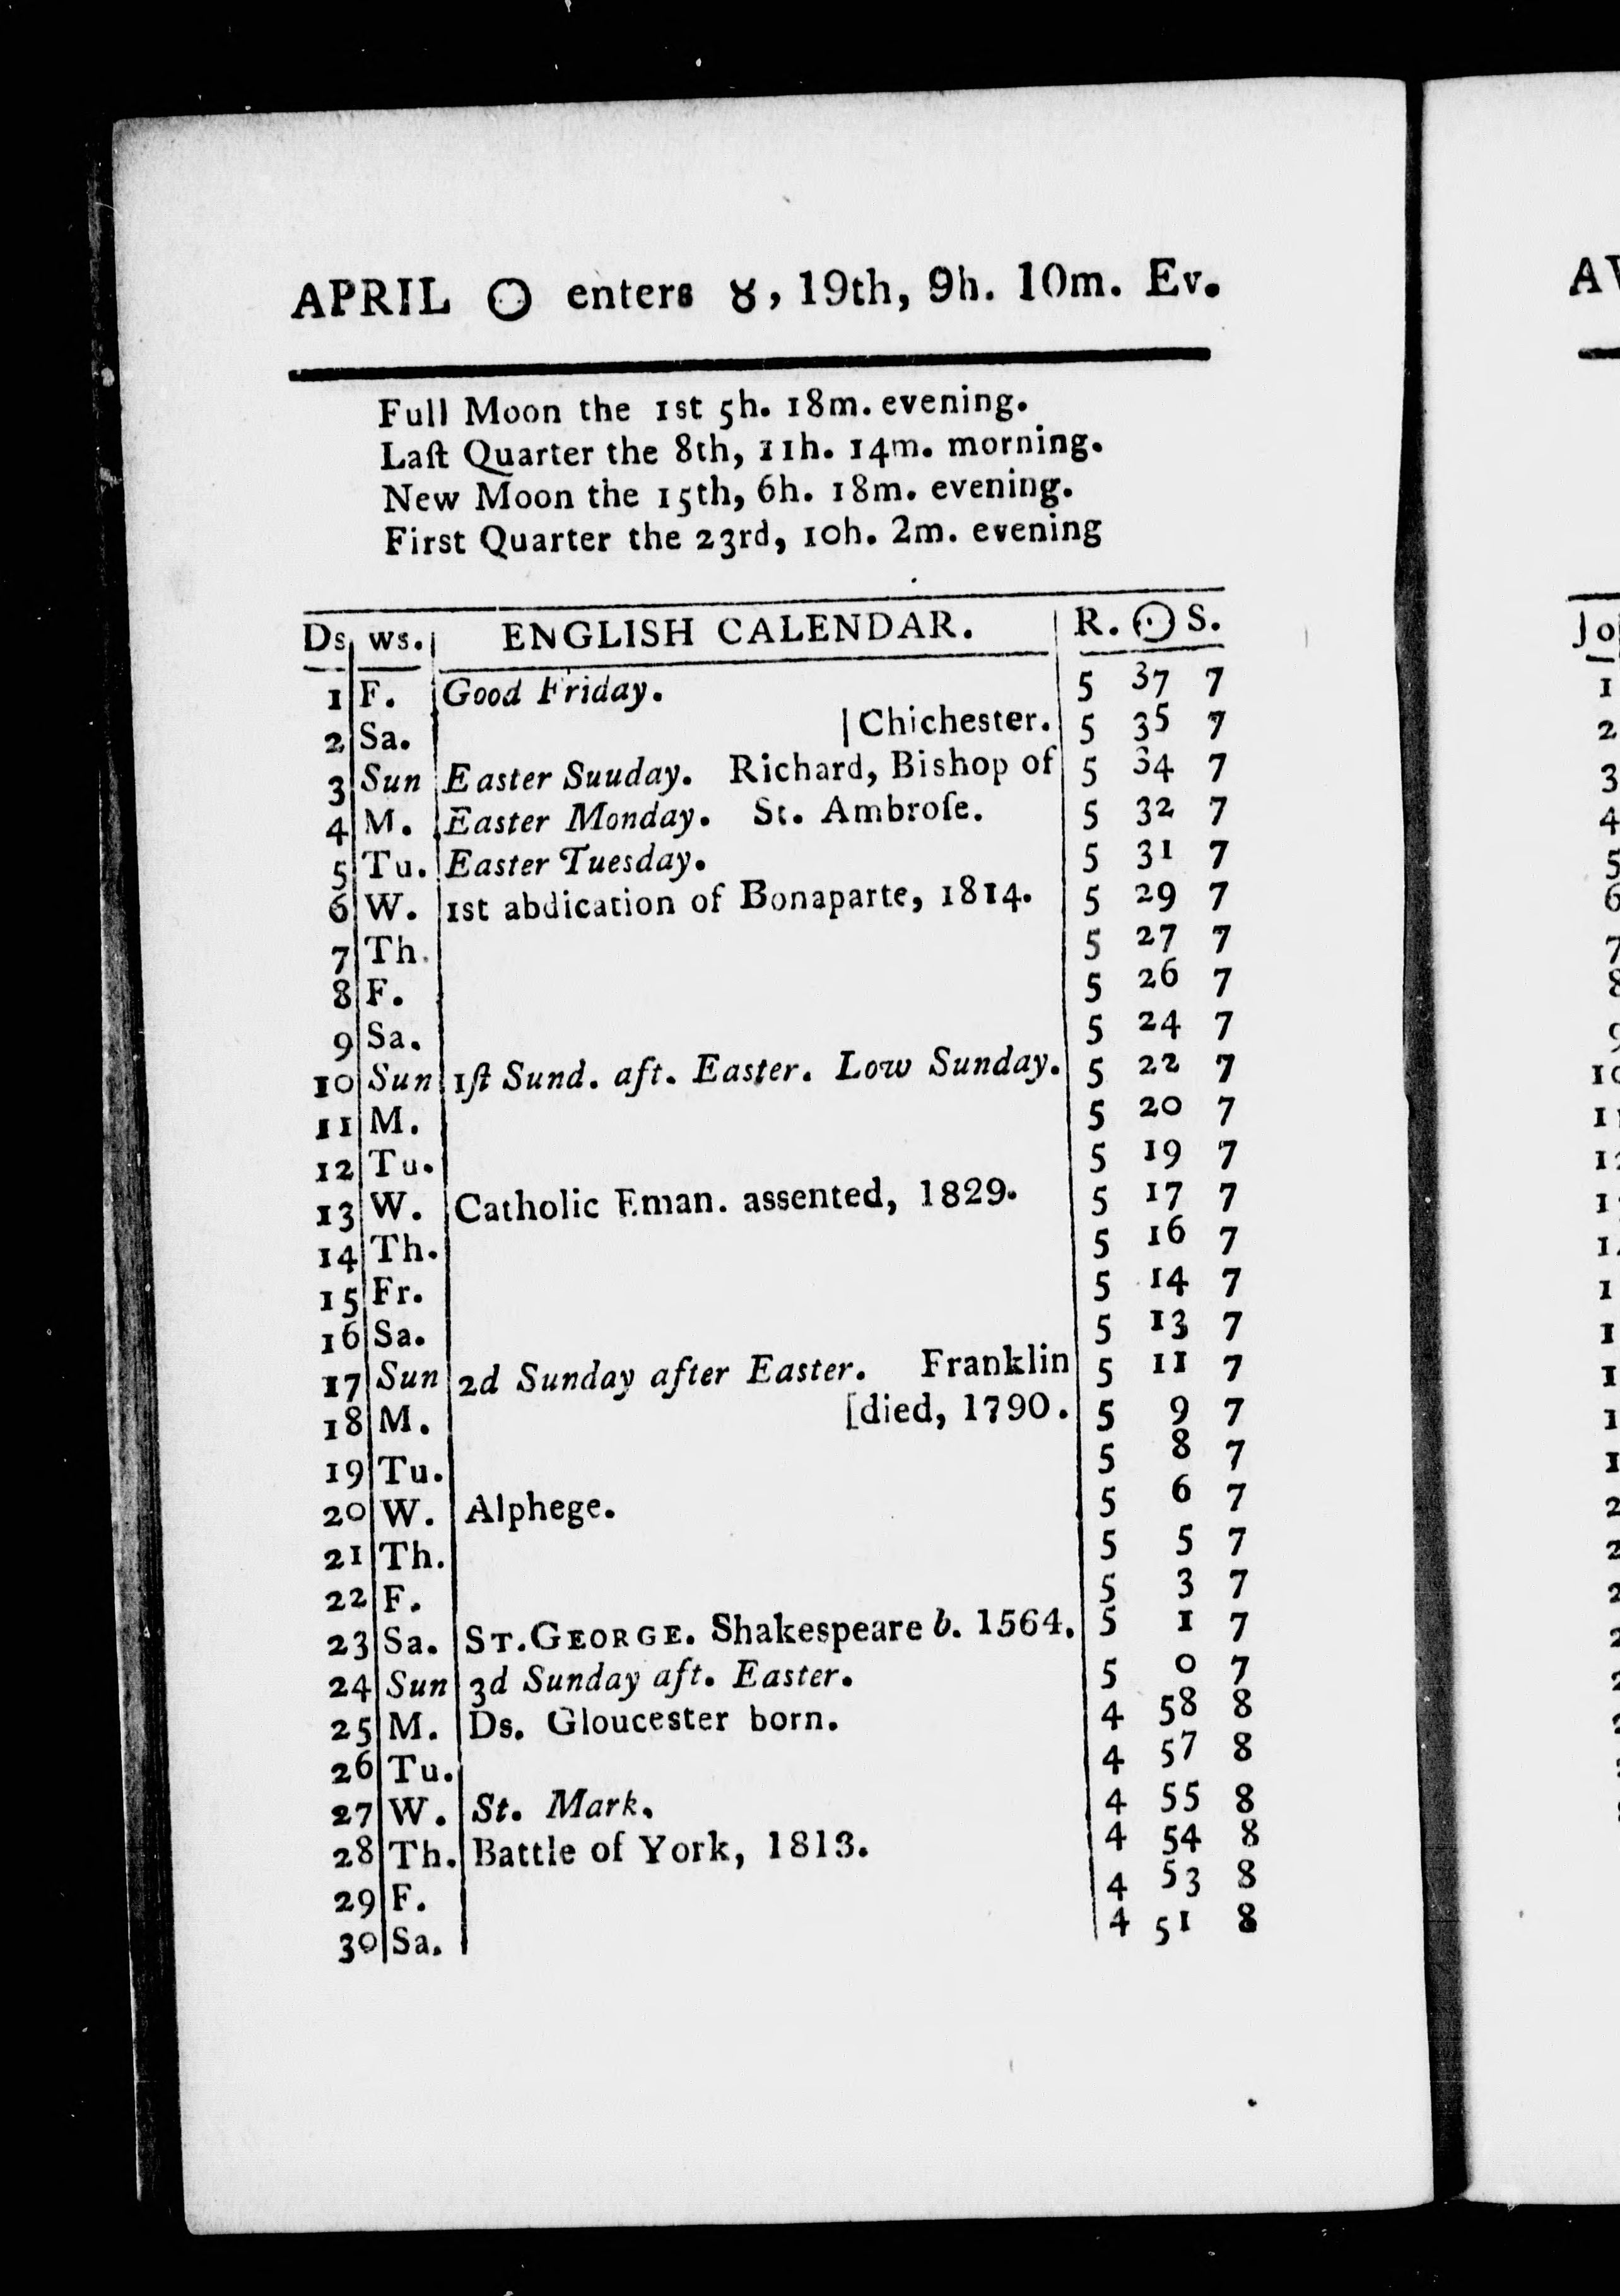 APRIL ☉ enters ♉, 19th, 9h. 10m. Ev.
Full Moon the 1st 5h. 18m. evening.
Laſt Quarter the 8th, 11h. 14m. morning.
New Moon the 15th, 6h. 18m. evening.
First Quarter the 23rd, 10h. 2m. evening
Ds ws. ENGLISH CALENDAR. R. ☉ S.
1 F. Good Friday. 5 37 7
2 Sa. |Chichester. 5 35 7
3 Sun Easter Suuday. Richard, Bishop of 5 34 7
4 M. Easter Monday. St. Ambroſe. 5 32 7
5 Tu. Easter Tuesday. 5 31 7
6 W. 1st abdication of Bonaparte, 1814. 5 29 7
7 Th. 5 27 7
8 F. 5 26 7
9 Sa. 5 24 7
10 Sun 1ſt Sund. aft. Easter. Low Sunday. 5 22 7
11 M. 5 20 7
12 Tu. 5 19 7
13 W. Catholic Eman. assented, 1829. 5 17 7
14 Th. 5 16 7
15 Fr. 5 14 7
16 Sa. 5 13 7
17 Sun 2d Sunday after Easter. Franklin 5 11 7
18 M. [died, 1790. 5 9 7
19 Tu. 5 8 7
20 W. Alphege. 5 6 7
21 Th. 5 5 7
22 F. 5 3 7
23 Sa. ST. GEORGE. Shakespeare b. 1564. 5 1 7
24 Sun 3d Sunday aft. Easter. 5 0 7
25 M. Ds. Gloucester born. 4 58 8
26 Tu. 4 57 8
27 W. St. Mark. 4 55 8
28 Th. Battle of York, 1813. 4 54 8
29 F. 4 53 8
30 Sa. 4 51 8